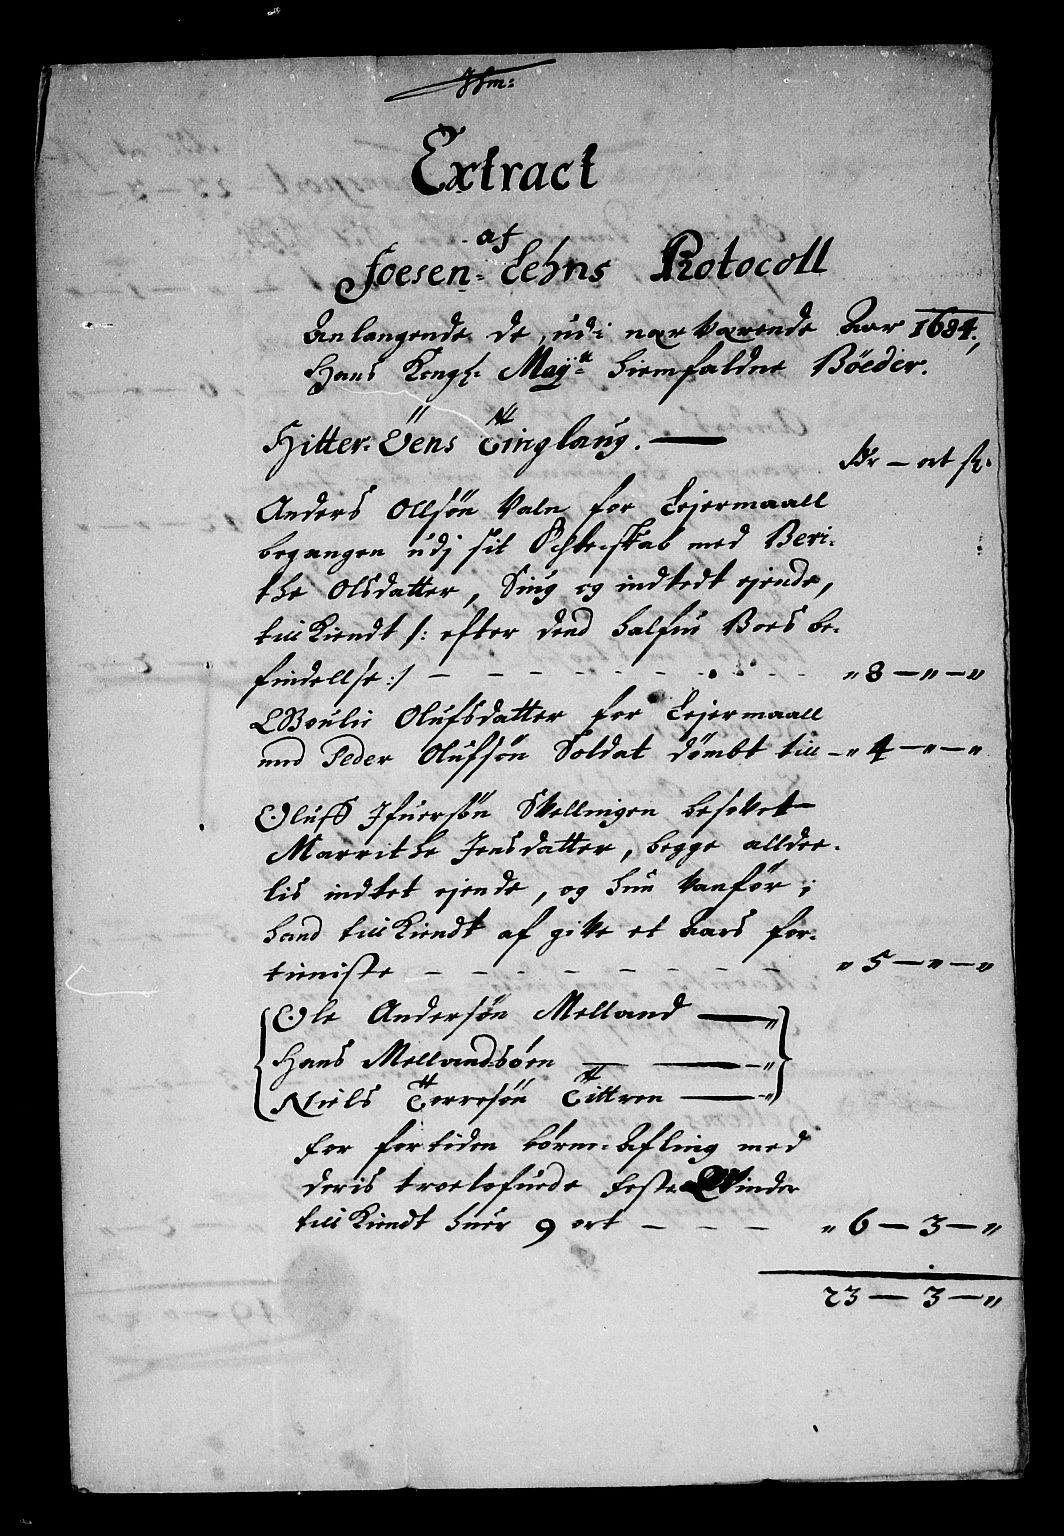 Extract
af
Foesen Lehns Protocoll
Anlangende de udi nær værende Aar 1684,
Hans Kongl: May:tz hiemfaldne Bøeder.
Hitter-Øens Tinglaug.
Dr — ort ß:
Anders Ollsøn Valn for Lejermaall
begangen udj sit Echteskab med Beri-
the Olsdatter, Siug og indtedt ejende,
till Kiendt /: efter dend halfue Boes be-
findellse :/ - - - - - - - - „ 8 — „ — „
Boulie Olufsdatter for Lejermaall
med Peder Olufsøn Soldat dømbt till - „ 4 — „ — „
Oluff Ifuersøn Skellnigen besoket
Marrithe Jensdatter, begge alldee-
lis indtet ejende, og hun Vanfør;
hand till Kiendt af give et Aars for-
tieniste - - - - - - - „ 5 — „ — „
Ole Andersøn Melland — „
Hans Mellandsøen — „
Niels Torresøn Tittren — „
for fortiden børne-Afling med
deris troelofuede feste Qvinder
till Kiendt huer 9 ort - - - „ 6 — 3 — „
23 — 3 — „